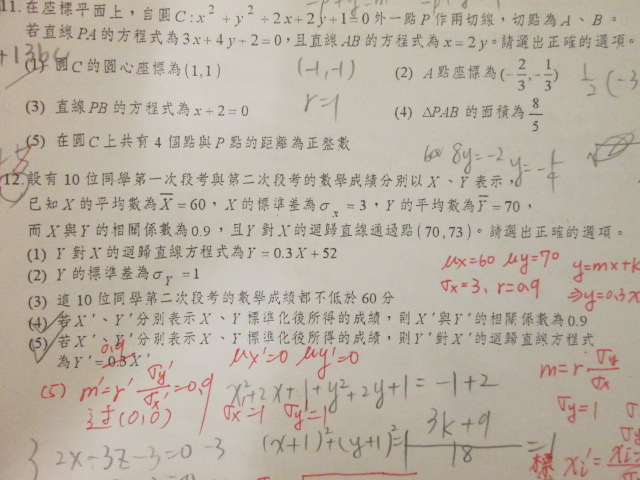 11. 在座標平面上，自圓 C：x² + y² + 2x + 2y + 1 = 0 外一點 P 作兩切線，切點為 A、B。
若直線 PA 的方程式為 3x + 4y + 2 = 0，且直線 AB 的方程式為 x = 2y。請選出正確的選項。
(1) 圓 C 的圓心座標為 (1, 1)
(-1, -1)
(2) A 點座標為 (-2/3, -1/3)
r=1
(3) 直線 PB 的方程式為 x + 2 = 0
(4) ΔPAB 的面積為 8/5
(5) 在圓 C 上共有 4 個點與 P 點的距離為正整數
8y = -2
y = -1/4
12. 設有 10 位同學第一次段考與第二次段考的數學成績分別以 X、Y 表示，
已知 X 的平均數為 X̄ = 60，X 的標準差為 σx = 3，Y 的平均數為 Ȳ = 70，
而 X 與 Y 的相關係數為 0.9，且 Y 對 X 的迴歸直線通過點 (70, 73)。請選出正確的選項。
(1) Y 對 X 的迴歸直線方程式為 Y = 0.3X + 52
μx=60 μy=70
y=mx+k
(2) Y 的標準差為 σY = 1
σx=3, r=0.9
⇒y=0.3x
(3) 這 10 位同學第二次段考的數學成績都不低於 60 分
(4) 若 X'、Y' 分別表示 X、Y 標準化後所得的成績，則 X' 與 Y' 的相關係數為 0.9
(5) 若 X'、Y' 分別表示 X、Y 標準化後所得的成績，則 Y' 對 X' 的迴歸直線方程式
為 Y' = 0.3X'
0.9
μx'=0 μy'=0
(5) m'=r' σy'/σx' =0.9
过(0,0)
σx'=1 σy'=1
x²+2x+1+y²+2y+1 = -1+2
m=r σy/σx
σy=1
(x+1)²+(y+1)²=1
3k+9/18
2x-3z-3=0
標 xi'=